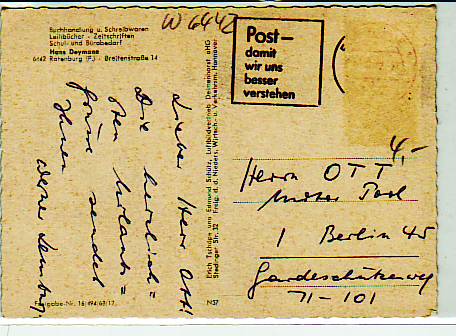 W 6442
Buchhandlung u. Schreibwaren
Leihbücher - Zeitschriften
Schul- und Bürobedarf
Hans Deymann
6442 Rotenburg (F.) - Breitenstraße 14
Post-
damit
wir uns
besser
verstehen
Lieber Herr Ott!
Die herzlich=
sten Urlaubs=
grüße sendet
Ihnen
Werner
Erich Tschöpe und Edmund Schütz, Luftbildvertrieb Delmenhorst oHG
Stedinger Str. 32 Freig. d. d. Nieders. Wirtsch.- u. Verkehrsm. Hannover
4,-
Herrn OTT
1 Berlin 45
Gardeschützenweg
71-101
Freigabe-Nr. 16/494/63/17.
N57